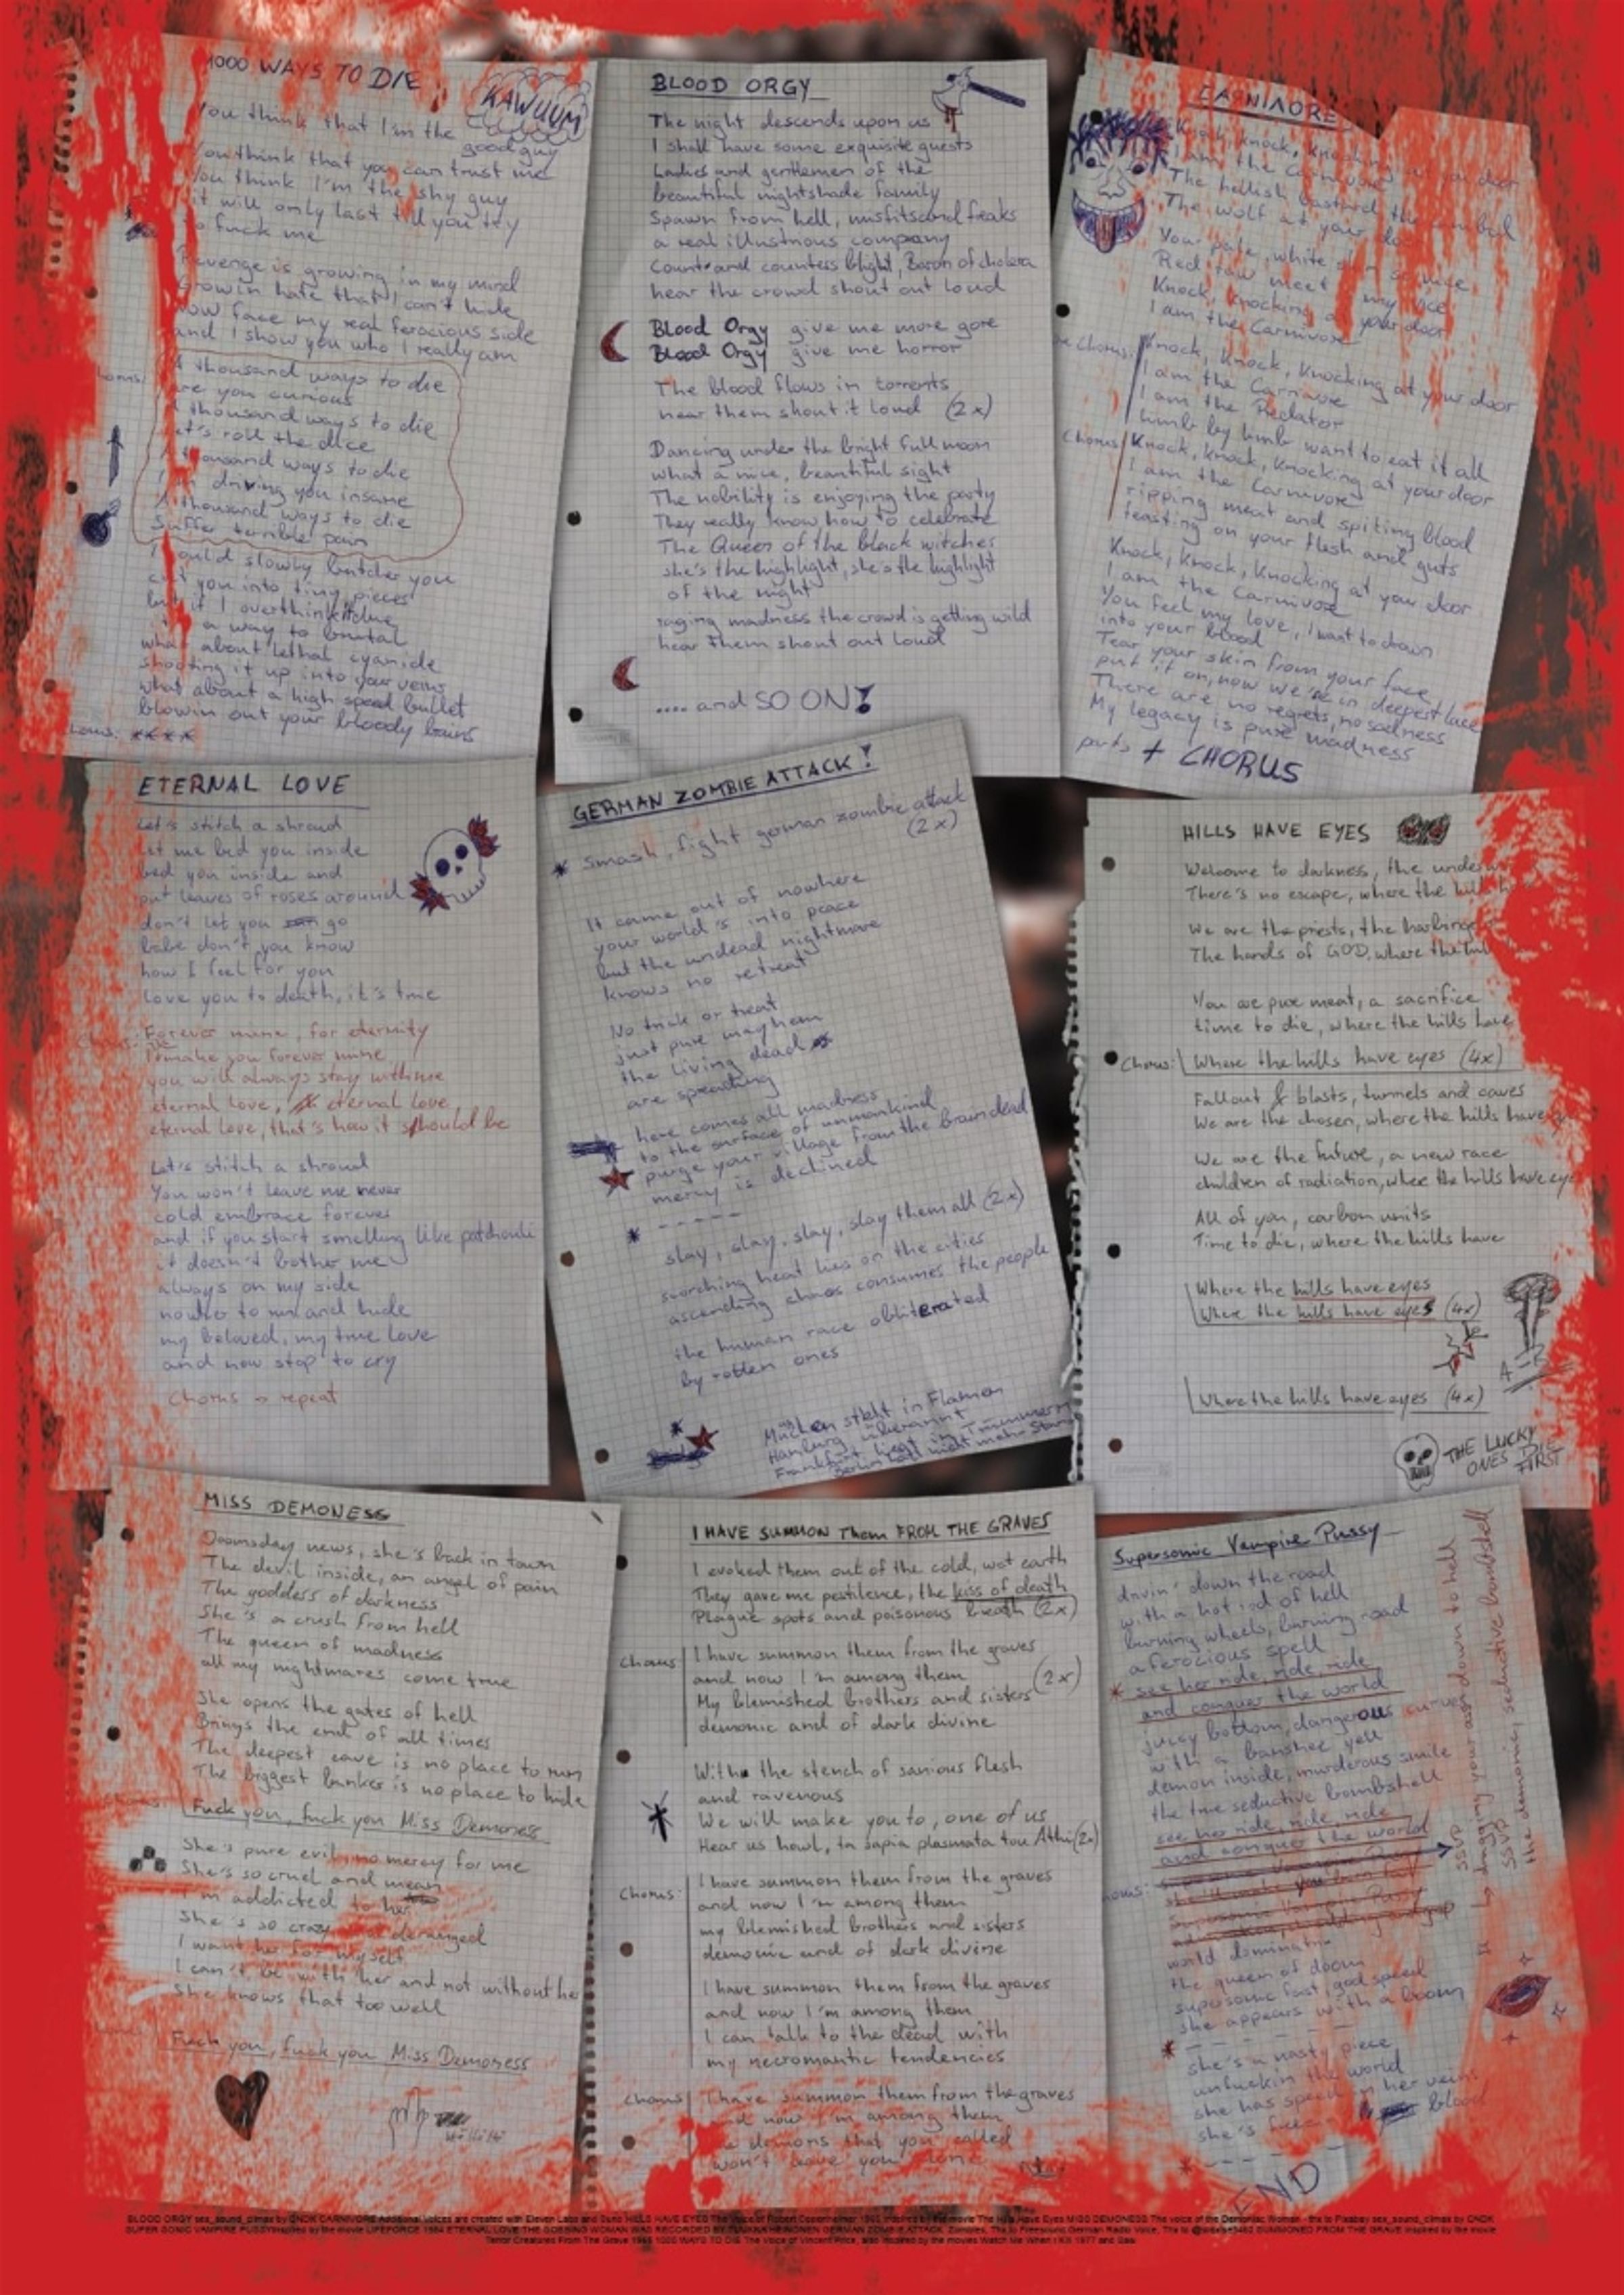 1000 WAYS TO DIE
KAWUUM
You think that I'm the
good guy
You think that you can trust me
You think I'm the shy guy
it will only last till you try
to fuck me
Revenge is growing in my mind
Growin hate that I can't hide
now face my real ferocious side
and I show you who I really am
A thousand ways to die
are you curious
A thousand ways to die
let's roll the dice
A thousand ways to die
I'm driving you insane
A thousand ways to die
Suffer terrible pain
I could slowly butcher you
cut you into tiny pieces
but if I overthink
a way to brutal
what about lethal cyanide
shooting it up into your veins
what about a high speed bullet
blowin out your bloody brains
BLOOD ORGY
The night descends upon us
I shall have some exquisite guests
Ladies and gentlemen of the
beautiful nightshade family
Spawn from hell, misfits and freaks
a real illustrious company
Count and counters blight, Baron of cholera
hear the crowd shout out loud
Blood Orgy give me more gore
Blood Orgy give me horror
The blood flows in torrents
hear them shout it loud (2x)
Dancing under the bright full moon
what a nice, beautiful sight
The nobility is enjoying the party
They really know how to celebrate
The Queen of the black witches
she's the highlight, she's the highlight
of the night
raging madness the crowd is getting wild
hear them shout out loud
.... and SO ON!
CARNIVORE
Knock, knock, knocking at your door
I am the Carnivore
The hellish bastard the cannibal
The wolf at your door
Your pale, white skin so nice
Red raw meet my vice
Knock, knocking at your door
I am the Carnivore
Chorus:
Knock, Knock, Knocking at your door
I am the Carnivore
I am the Predator
limb by limb want to eat it all
Chorus
Knock, Knock, Knocking at your door
I am the Carnivore
ripping meat and spiting blood
feasting on your flesh and guts
Knock, Knock, Knocking at your door
I am the Carnivore
You feel my love, I want to drown
into your blood
Tear your skin from your face
put it on, now we're in deepest lace
There are no regrets, no sadness
My legacy is pure madness
+ CHORUS
ETERNAL LOVE
Let's stitch a shroud
Let me bed you inside
bed you inside and
put leaves of roses around
don't let you go
babe don't you know
how I feel for you
love you to death, it's true
Chorus: Forever mine, for eternity
I make you forever mine
you will always stay with me
eternal love, eternal love
eternal love, that's how it should be
Let's stitch a shroud
You won't leave me never
cold embrace forever
and if you start smelling like patchouli
it doesn't bother me
always on my side
nowhere to run and hide
my beloved, my true love
and now stop to cry
Chorus → repeat
GERMAN ZOMBIE ATTACK!
* smash, fight german zombie attack
(2x)
It came out of nowhere
your world's into peace
but the undead nightmare
knows no retreat
No trick or treat
just pure mayhem
the living dead
are spreading
here comes all madness
to the surface of unmankind
purge your village from the brain dead
mercy is declined
* -----
slay, slay, slay, slay them all (2x)
scorching heat lies on the cities
ascending chaos consumes the people
the human race obliterated
by rotten ones
*
München steht in Flammen
Hamburg überrannt
Frankfurt liegt in Trümmern
Berlin hält nicht mehr Stand
HILLS HAVE EYES
Welcome to darkness, the underw
There's no escape, where the hills h
We are the priests, the harbinger
The hands of GOD, where the hil
You are pure meat, a sacrifice
time to die, where the hills have
Chorus: Where the hills have eyes (4x)
Fallout & blasts, tunnels and caves
We are the chosen, where the hills have
We are the future, a new race
children of radiation, where the hills have eye
All of you, carbon units
Time to die, where the hills have
Where the hills have eyes
Where the hills have eyes (4x)
Where the hills have eyes (4x)
THE LUCKY
ONES DIE
FIRST
MISS DEMONESS
Doomsday news, she's back in town
The devil inside, an angel of pain
The goddess of darkness
She's a crush from hell
The queen of madness
all my nightmares come true
She opens the gates of hell
Brings the end of all times
The deepest cave is no place to run
The biggest bunker is no place to hide
Fuck you, fuck you Miss Demoness
She's pure evil, no mercy for me
She's so cruel and mean
I'm addicted to her
She's so crazy deranged
I want her for myself
I can't be with her and not without her
She knows that too well
Fuck you, fuck you Miss Demoness
I HAVE SUMMON Them FROM THE GRAVES
I evoked them out of the cold, wet earth
They gave me pestilence, the kiss of death
Plague spots and poisonous breath (2x)
Chorus
I have summon them from the graves
and now I'm among them
(2x)
My blemished brothers and sisters
demonic and of dark divine
With the stench of sanious flesh
and ravenous
We will make you to, one of us
Hear us howl, ta sapia plasmata tou Athi (2x)
Chorus:
I have summon them from the graves
and now I'm among them
my blemished brothers and sisters
demonic and of dark divine
I have summon them from the graves
and now I'm among them
I can talk to the dead with
my necromantic tendencies
Chorus
I have summon them from the graves
and now I'm among them
demons that you called
won't leave you alone
Supersonic Vampire Pussy
drivin' down the road
with a hot rod of hell
burning wheels, burning road
a ferocious spell
* see her ride, ride, ride
and conquer the world
juicy bottom, dangerous curves
with a banshee yell
demon inside, murderous smile
the true seductive bombshell
see her ride, ride, ride
and conquer the world
SSVP
dragging your ass down to hell
SSVP
the demonic, seductive bombshell
world
the queen of doom
supersonic fast, god speed
she appears with a boom
* -----
she's a nasty piece
unfuckin the world
she has speed in her veins
she's blood
* -----
END